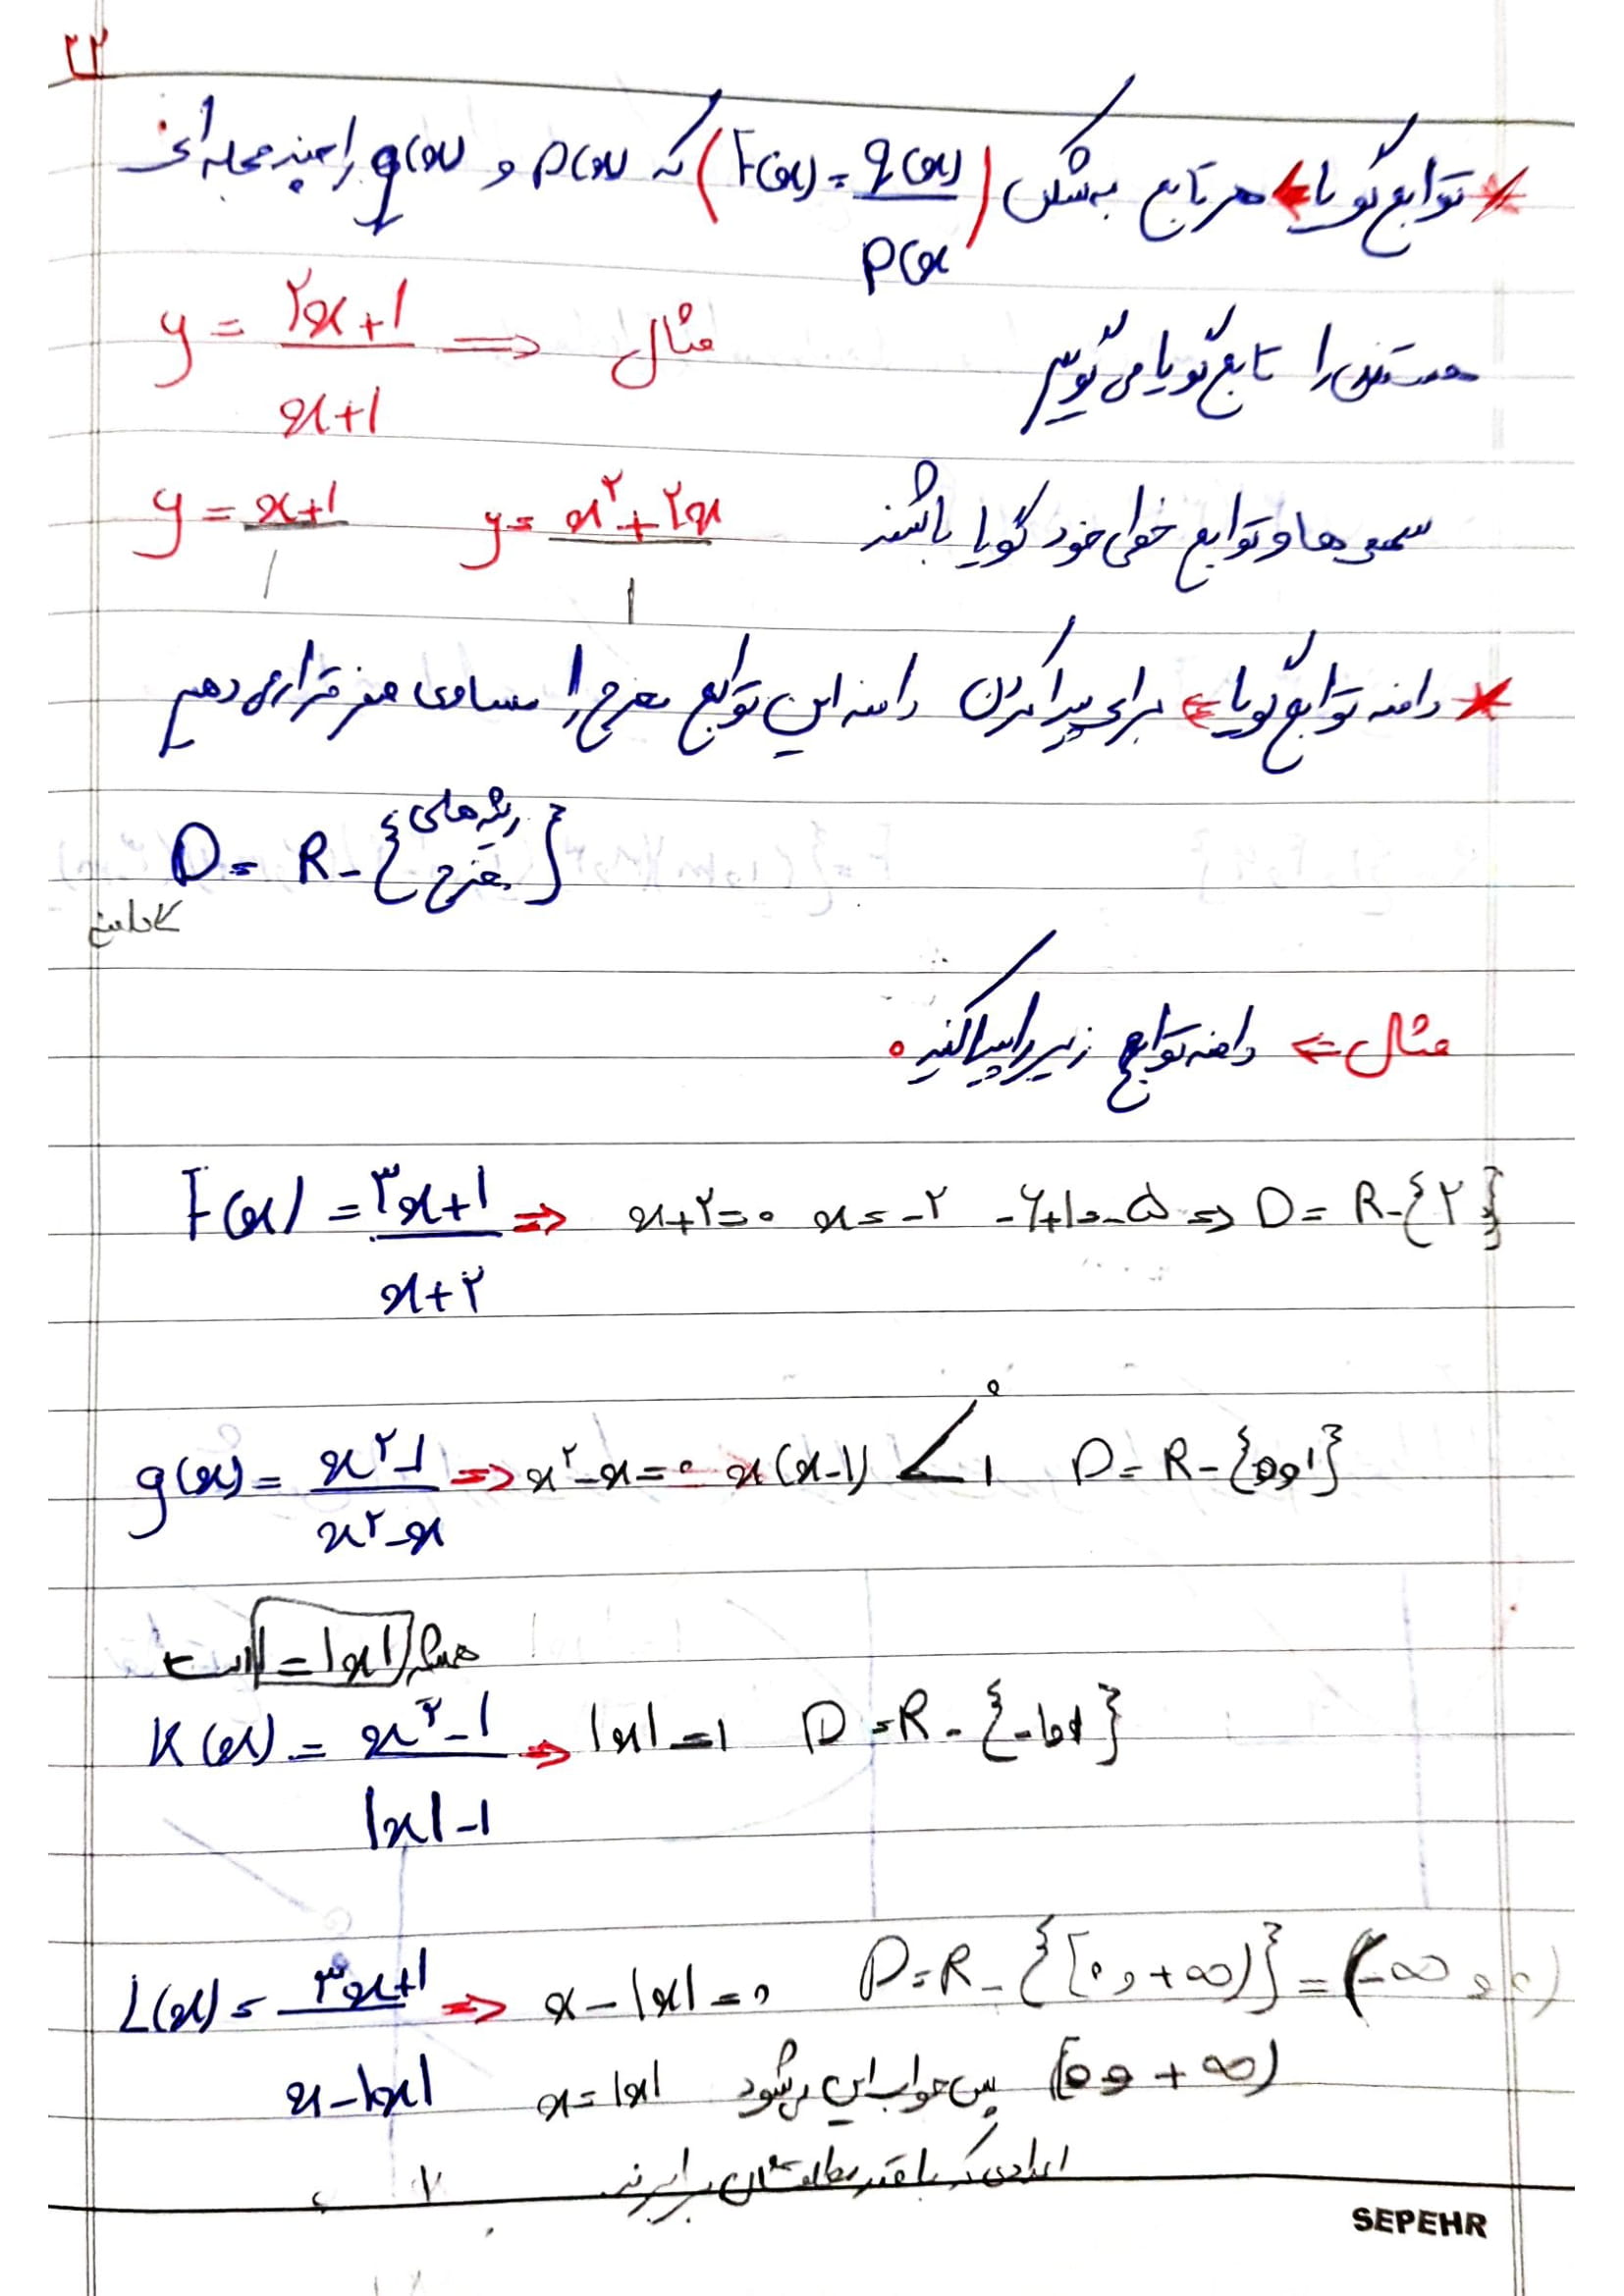 ۲۲
* توابع گویا ← هر تابع به شکل (F(x) = q(x)/p(x)) که p(x) و q(x) را چند جمله ای
هستند را تابع گویا می گوییم
مثال ⇒ y = ۲x+1/x+1
سهمی ها و توابع خطی خود گویا باشند
y = x²+۲x/1
y = x+1/1
* دامنه توابع گویا ← برای پیدا کردن دامنه این توابع مخرج را مساوی صفر قرار می دهیم
D = R - {ریشه های مخرج}
مثال ← دامنه توابع زیر را پیدا کنید.
F(x) = ۳x+1/x+۲ ⇒ x+۲=۰ x=-۲ -۶+1=-۵ ⇒ D = R-{۲}
g(x) = x²-1/x²-x ⇒ x²-x=۰ x(x-1) < ۰ 1 D = R-{۰ و 1}
|x| = 1 است
K(x) = x²-1/|x|-1 ⇒ |x|=1 D = R-{-1 و 1}
L(x) = ۳x+1/x-|x| ⇒ x-|x|=۰ D = R-{[۰ و +∞)} = (-∞ و ۰)
x=|x| پس جواب این می شود [۰ و +∞)
اعدادی که با قدر مطلقشان برابرند
SEPEHR